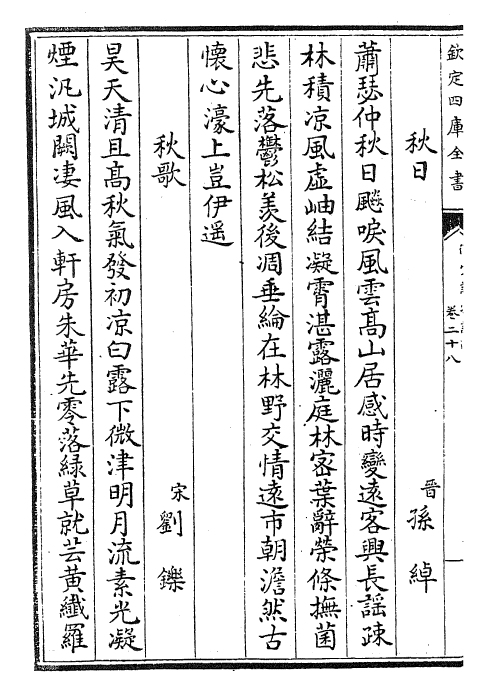 欽定四庫全書
卷二十八
秋日
晉孫綽
蕭瑟仲秋日飈唳風雲髙山居感時變遠客興長謡疎
林積凉風虚岫結凝霄湛露灑庭林宻葉辭榮條撫菌
悲先落鬱松羡後凋垂綸在林野交情遠市朝澹然古
懐心濠上豈伊遥
秋歌
宋劉鑠
昊天清且髙秋氣發初凉白露下微津明月流素光凝
煙汎城闕凄風入軒房朱華先零落緑草就芸黄纎羅